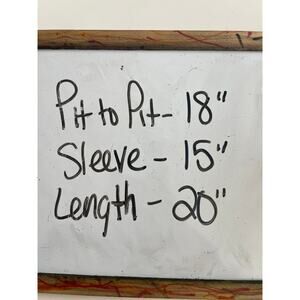 Pit to Pit - 18"
Sleeve - 15"
Length - 20"